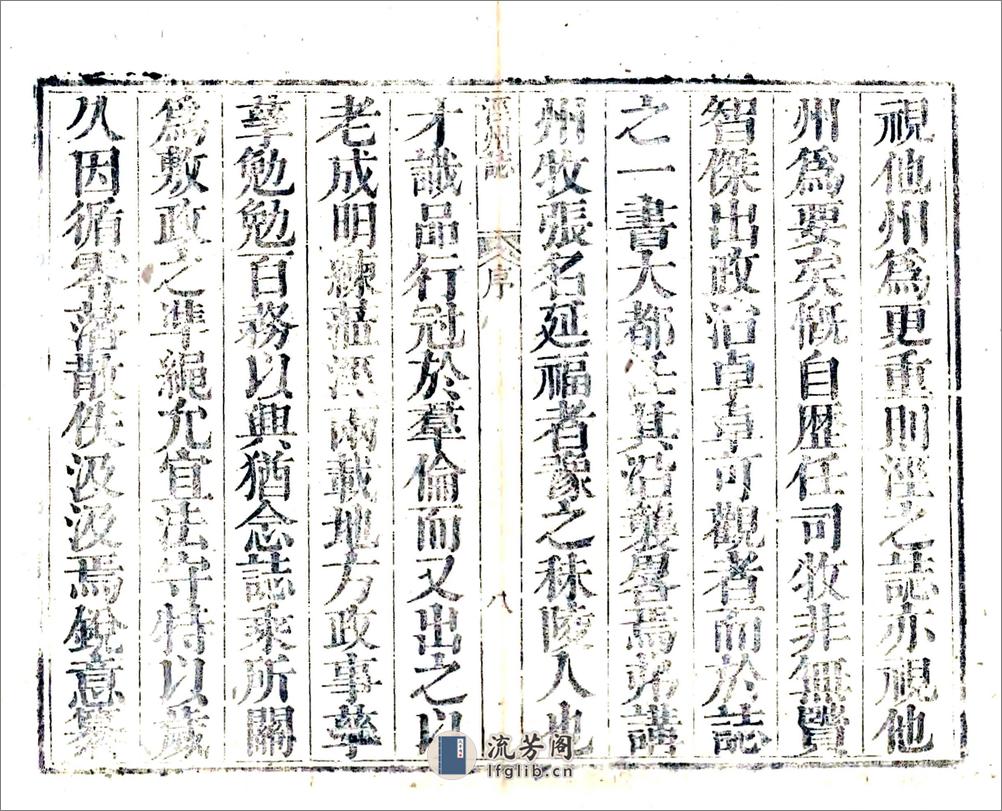 視他州爲更重則涇之誌亦視他
州爲要矣慨自歴任司牧非無賢
智傑出政治卓卓可觀者而於誌
之一書大都任其沿襲畧焉弗講
州牧張名延福者豫之秣陵人也
涇州誌 序 八
才識品行冠於羣倫而又出之以
老成明練蒞涇兩載地方政事孳
孳勉勉百務以興猶念誌乘所關
爲敷政之準繩允宜法守特以歲
久因循零落散佚汲汲焉銳意纂
流芳阁
lfglib.cn